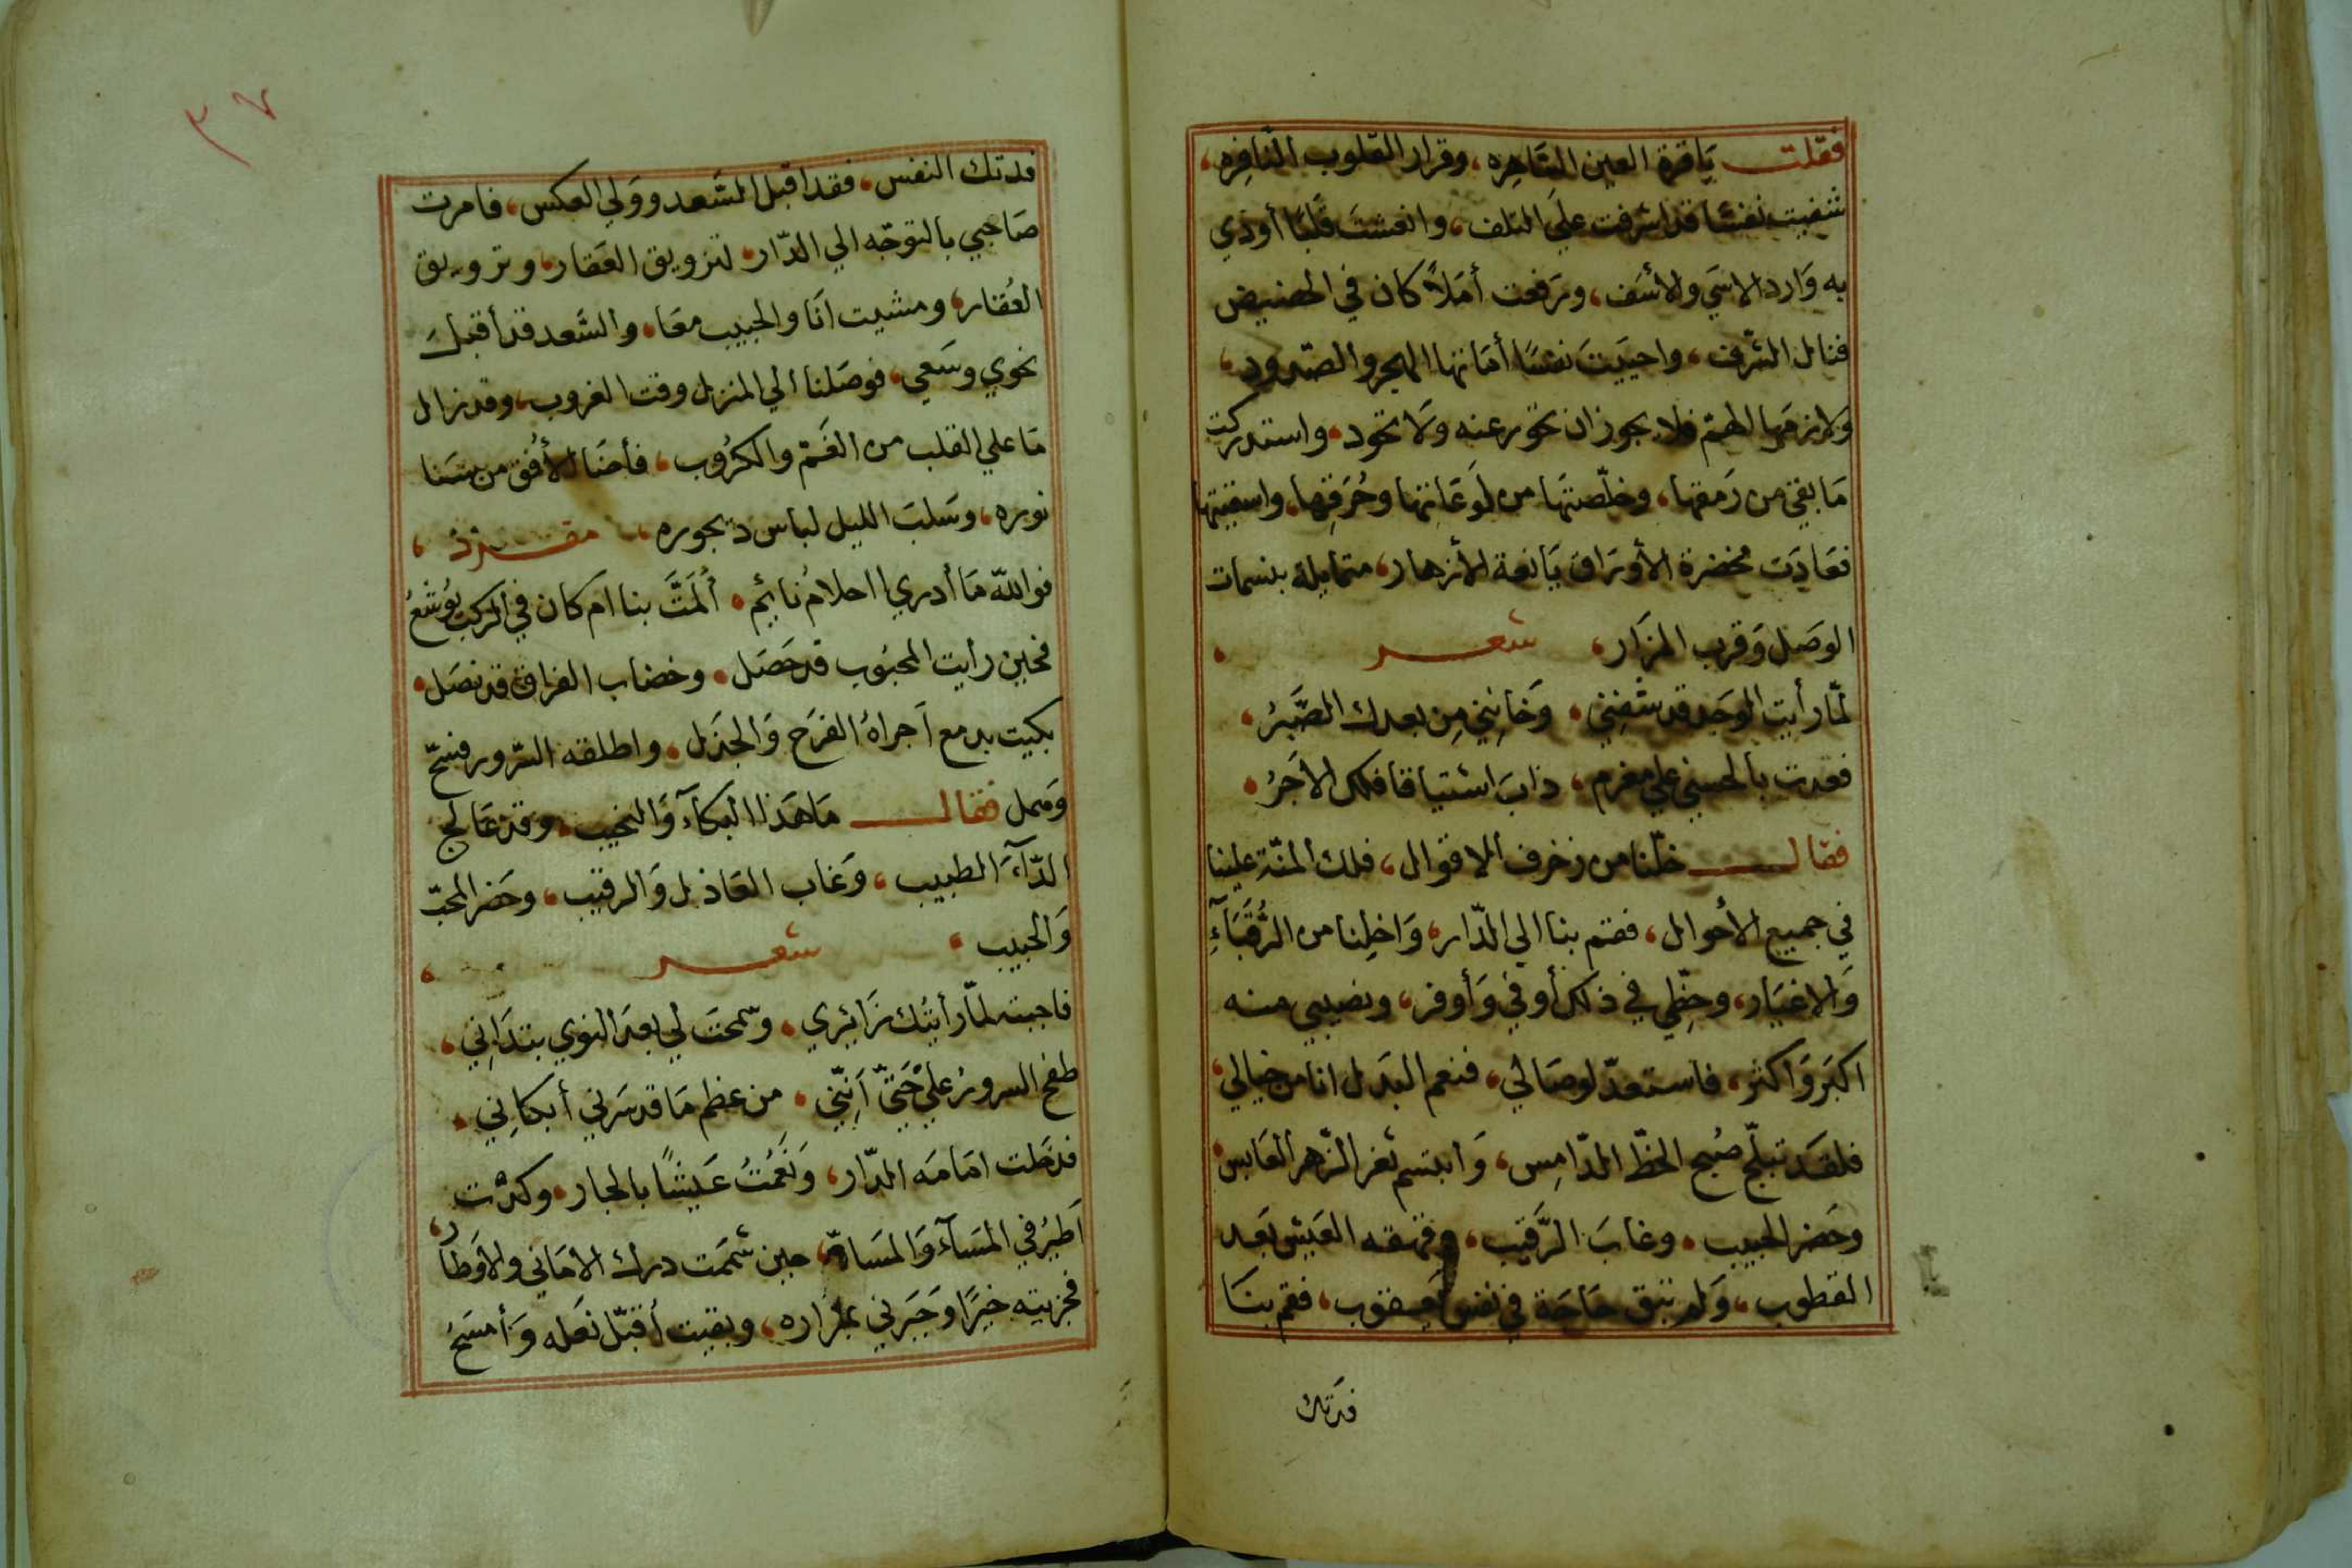 فقلت يَاقرة العين السَّاهِره، وقرار القلوب النَّافِره،
شفيت نفسًا قد اشرفت علَي التلف، وانعشتَ قلبًا أوذي
به وَارد الاسَي والاسَف، ورَفعت أمَلاً كان في الحضيض
فنال الشرف، واحييَتَ نفسًا أمَاتها الهجر والصّدود،
وَلازمَها الهمّ فلا يجوز ان تحور عنه وَلا تحود، واستدركت
مَا بقي من رَمقها، وخلّصتهَا من لَوعَاتها وحُرَقِها، واسقيتها
فعَادَت مخضرة الأورَاق يَانعة الأزهار، متمايلة بنسمات
الوصَل وَقرب المزَار، شعر
لمّا رأيت الوجَد قد شفني، وَخَانِني مِن بعدك الصَّبرُ،
فعدت بالحسني علي مغرم، ذابَ اشتياقا فلك الاجَرُ،
فقال خلّنا من زخرف الاقوال، فلك المنّة علينا
في جميع الأحوال، فقم بنا الي الدّار، وَاخلِنا من الرُّقَبَآءِ
وَالاغيَار، وحظِّي في ذلك أوفي وَأوفر، ونصيبي منه
اكبَر وَاكثر، فاستعدّ لوصَالي، فنعم البدَل انا من خيالي،
فلقَد تبلّج صُبح الحظّ الدّامِس، وَابتسم ثغر الزّهر العَابس،
وحَضر الحبيب، وغابَ الرَّقيب، وقهقه العَيش بعَد
القطوب، وَلم تبق حَاجَة في نفس يعقوب، فقم بنَا
فدَتك
٣٧
فدتك النفس، فقد اقبل السَّعد ووَلي العكس، فامرت
صَاحبي بالتوجّه الي الدّار، لتزويق العَقار، وترويق
العُقار، ومشيت انَا والحبيب معَا، والسَّعد قد أقبلَ
نحوي وسَعي، فوصَلنا الي المنزل وقت الغروب، وقد زال
مَا علي القلب من الغَم والكرُوب، فأضَا الأفُق من سَنا
نوره، وسَلبَ الليل لباس ديجوره، مفرد
فوالله مَا أدري احلامُ نائِم، ألمَتَّ بنا ام كان في الركب يُوشعُ
فحين رأيت المحبُوب قد حَصَل، وخضاب الفراق قد نصَل،
بكيت بدمع اَجراهُ الفرَح وَالجذل، واطلقه السّرور فسَحّ
وَهمل فقال مَا هَذا البكآء وَالنحيب، وقد عَالج
الدّآءَ الطبيب، وَغاب العَاذل وَالرقيب، وحَضر المحبّ
وَالحبيب، شعر
فاجبته لمّا رأيتُك زَائِري، وسمحتَ لي بعدَ النوي بتدَانِي،
طفح السرورُ عليّ حَتّي اَنِّني، من عظم مَا قد سَرني أبكانِي،
فدخَلت امَامَه الدّار، وَنَعُمْتُ عَيشًا بالجار، وكدْت
اَطيرُ في المسَآء وَالمسَارّه، حين شمَمَت درك الامَاني والأوَطار،
فجزيته خيرًا وَجَبَرني بمزاره، وبقيت أقبّل نعَله وَأمسَحُ